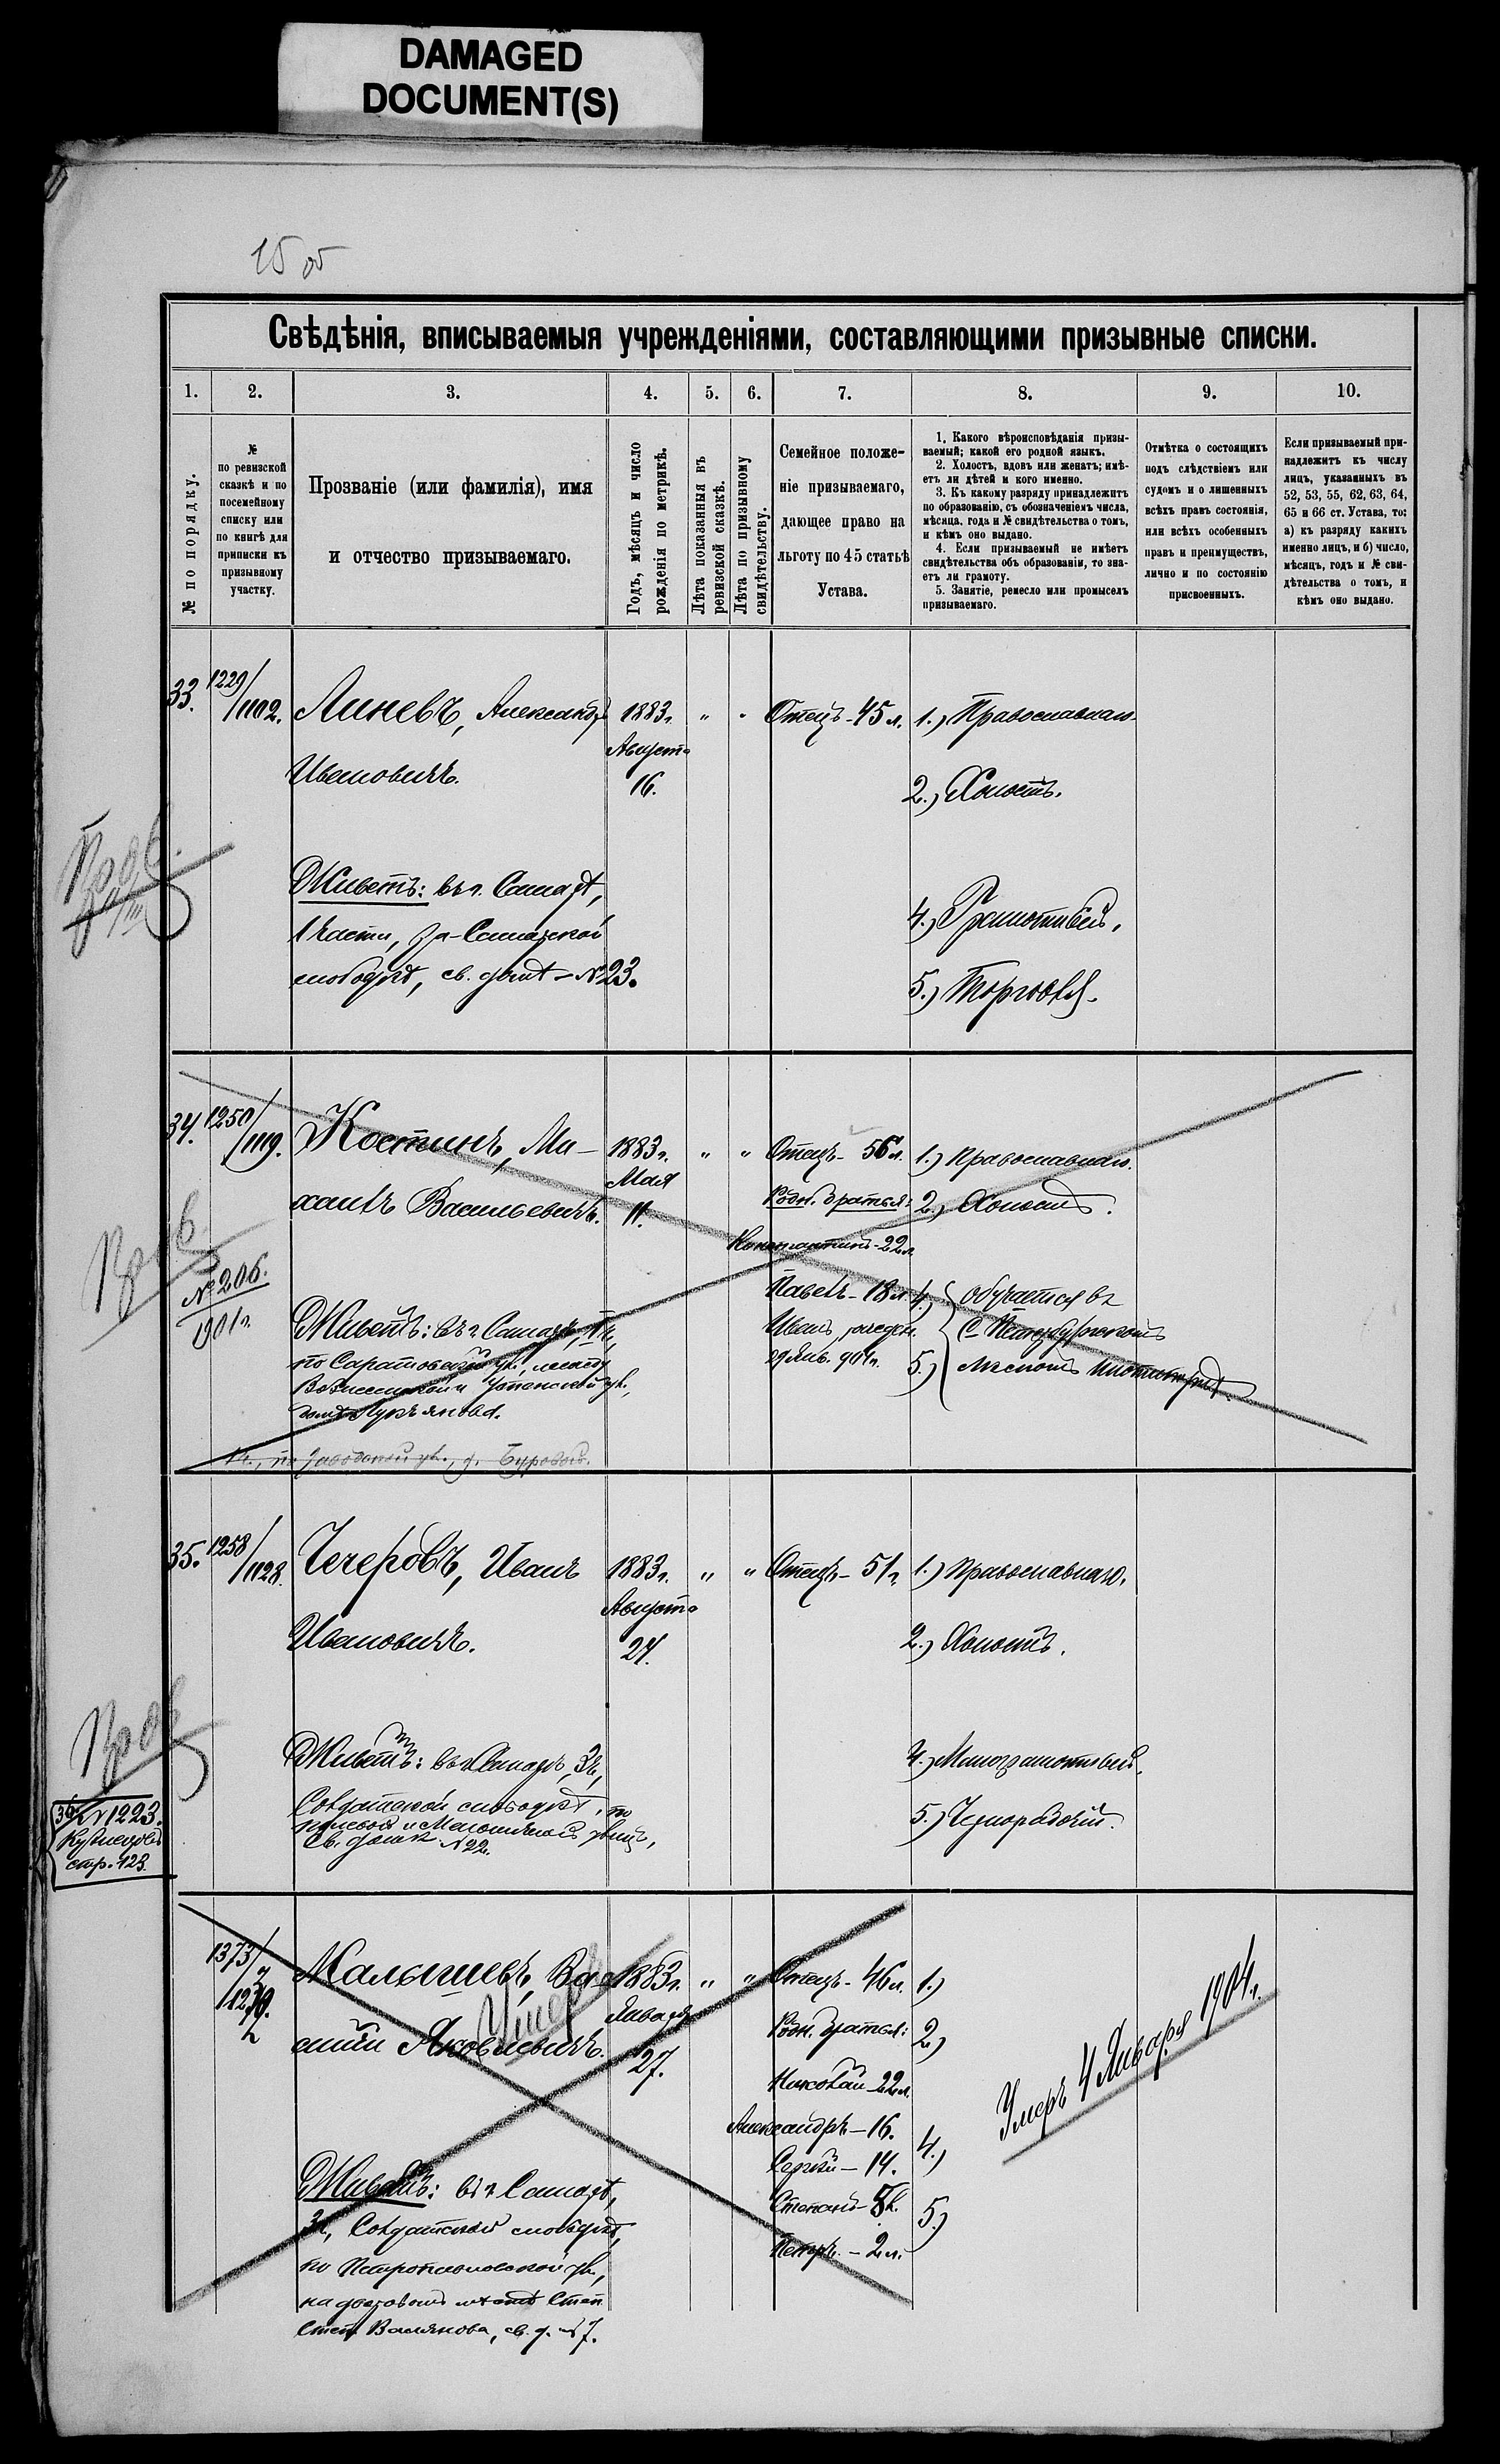 DAMAGED
DOCUMENT(S)
15 об
Свѣдѣнія, вписываемыя учрежденіями, составляющими призывные списки.
1. 2. 3. 4. 5. 6. 7. 8. 9. 10.
№ по порядку.
№
по ревизской
сказкѣ и по
посемейному
списку или
по книгѣ для
приписки къ
призывному
участку.
Прозваніе (или фамилія), имя
и отчество призываемаго.
Годъ, мѣсяцъ и число
рожденія по метрикѣ.
Лѣта показанныя въ
ревизской сказкѣ.
Лѣта по призывному
свидѣтельству.
Семейное положе-
ніе призываемаго,
дающее право на
льготу по 45 статьѣ
Устава.
1. Какого вѣроисповѣданія призы-
ваемый; какой его родной языкъ.
2. Холостъ, вдовъ или женатъ; имѣ-
етъ ли дѣтей и кого именно.
3. Къ какому разряду принадлежитъ
по образованію, съ обозначеніемъ числа,
мѣсяца, года и № свидѣтельства о томъ,
и кѣмъ оно выдано.
4. Если призываемый не имѣетъ
свидѣтельства объ образованіи, то зна-
етъ ли грамоту.
5. Занятіе, ремесло или промыселъ
призываемаго.
Отмѣтка о состоящихъ
подъ слѣдствіемъ или
судомъ и о лишенныхъ
всѣхъ правъ состоянія,
или всѣхъ особенныхъ
правъ и преимуществъ,
лично и по состоянію
присвоенныхъ.
Если призываемый при-
надлежитъ къ числу
лицъ, указанныхъ въ
52, 53, 55, 62, 63, 64,
65 и 66 ст. Устава, то:
а) къ разряду какихъ
именно лицъ, и б) число,
мѣсяцъ, годъ и № сви-
дѣтельства о томъ, и
кѣмъ оно выдано.
33. 1229/1102. Линевъ, Александръ 1883 г. " " Отецъ - 45 л. 1.) Православнаго.
Августа
Ивановичъ. 16. 2.) Холостъ.
Живетъ: въ г. Самарѣ,
1 части, За-Самарской 4.) Грамотный.
слободкѣ, св. домѣ - № 23. 5.) Торговля.
34. 1250/1119. Костинъ, Ми- 1883 г. " " Отецъ - 56 л. 1.) Православнаго.
Мая
хаилъ Васильевичъ. 11. Родн. братья: 2.) Холостъ.
Константинъ - 22 л.
Павелъ - 18 л. 4.) обучается въ
№ 206.
1901 г.
Живетъ: въ г. Самарѣ, Иванъ, рожден. С Петербургскомъ
29 Янв. 901 г. 5.) Лѣсномъ Институтѣ.
по Саратовской ул., между
Вознесенской и Успенской ул.,
домъ Лукьянова.
по Заводской ул., д.
35. 1258/1128. Чечеровъ, Иванъ 1883 г. " " Отецъ - 51 г. 1.) Православнаго.
Августа
Ивановичъ. 24. 2.) Холостъ.
Живетъ: въ г. Самарѣ, 3 ч., 4.) Малограмотный.
Солдатской слободкѣ, по 5.) Чернорабочій.
св. домъ № 22.
№ 1223.
Кузнецовъ
стр. 123.
1373/1239. Малышевъ, Ва- 1883 г. " " Отецъ - 46 л. 1.)
Января
силій Яковлевичъ. 27. Родн. братья: 2.)
Умеръ
Николай - 22 л.
Александръ - 16. 4.)
Сергѣй - 14.
Живетъ: въ г. Самарѣ, Степанъ - 5 л. 5.)
3 ч., Солдатской слободкѣ, Петръ - 2 л.
по Петропавловской ул.,
св. д. № 7.
Умеръ 4 Января 1904 г.